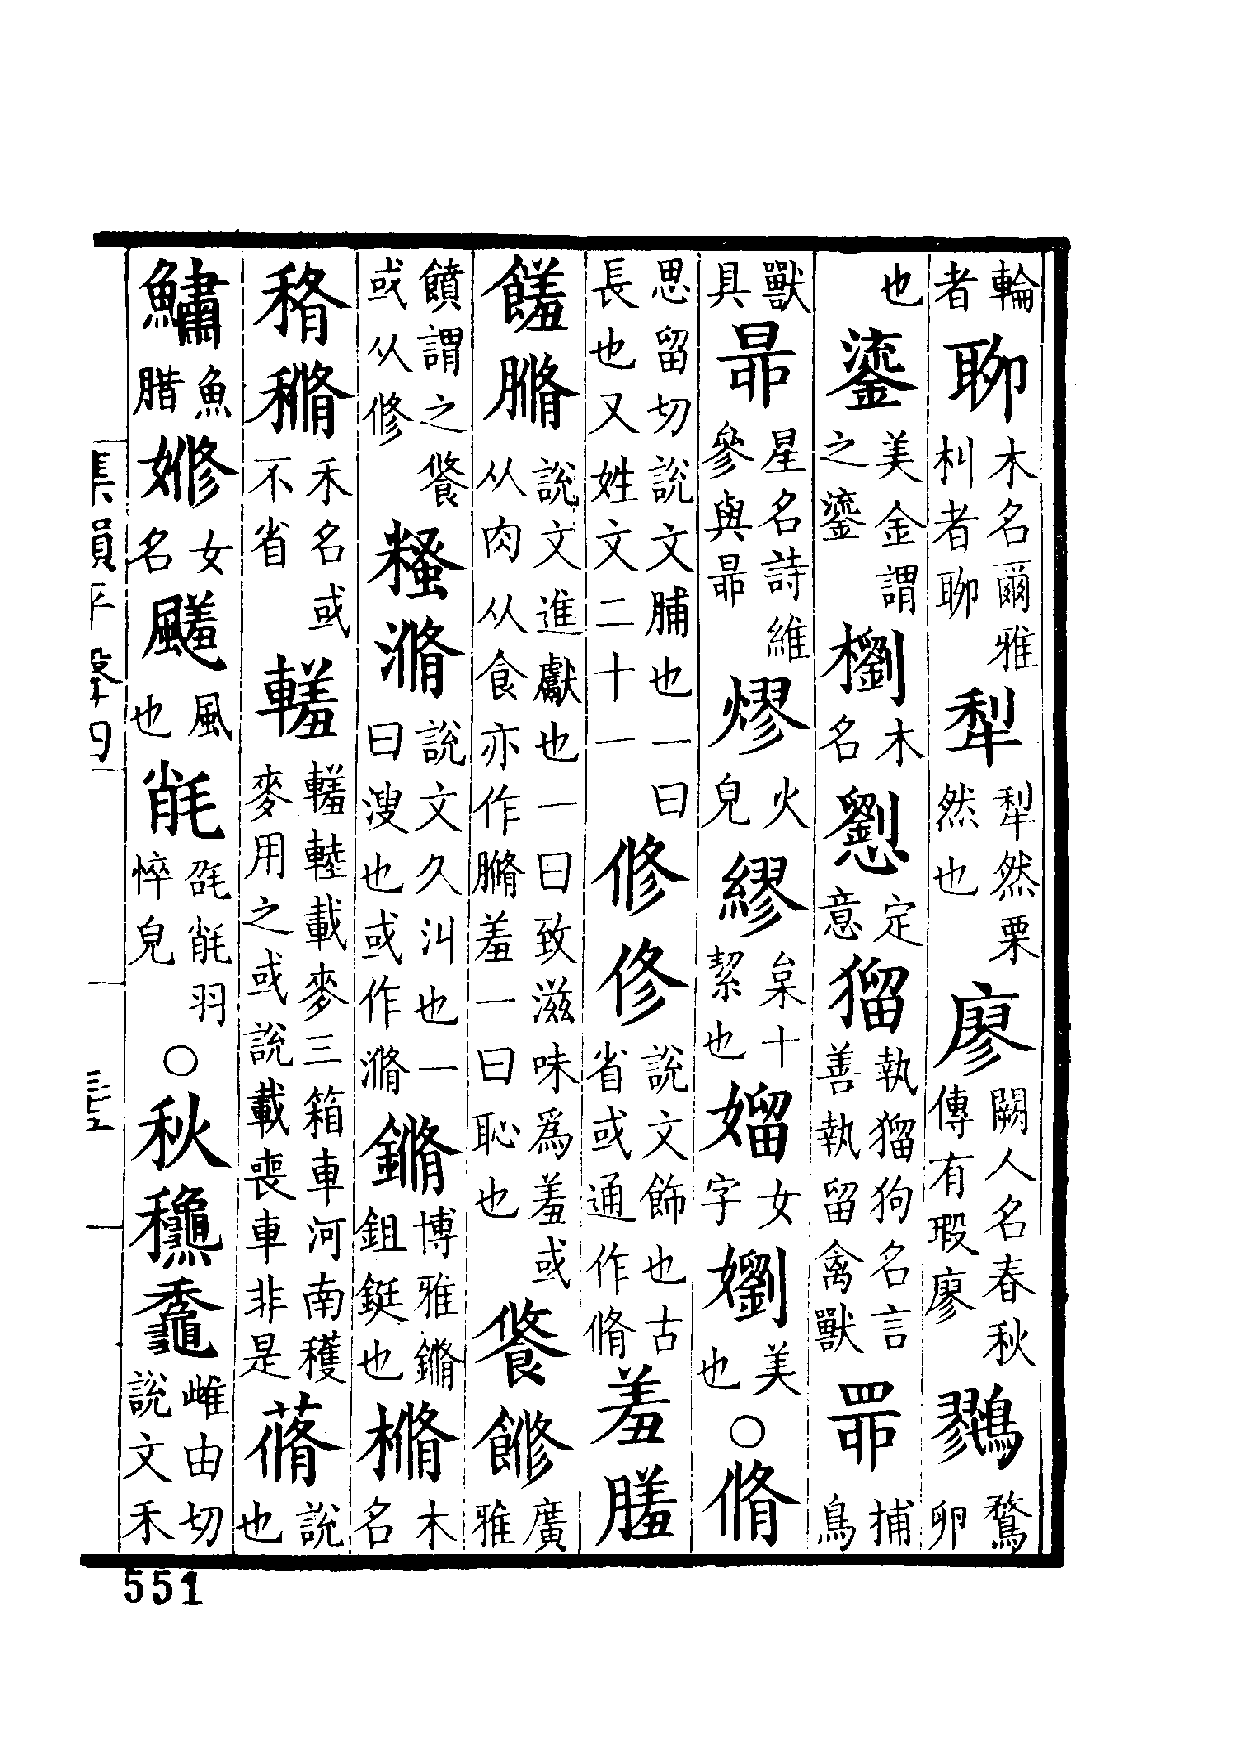 輪者聊木名爾雅朻者聊犁犁然栗然也廖闕人名春秋傳有瑕廖鷚鶩卵
也鎏美金謂之鎏橊木名懰定意獵執獵狗名言善執留禽獸罤捕鳥
獸具昴星名詩維參與昴熮火皃繆枲十絜也媹女字嬼美也○脩
思留切說文脯也一曰長也又姓文二十一修俢說文飾也古省或通作脩羞膳
饈膌說文進獻也一曰致滋味爲羞或从肉从食亦作膌羞一曰恥也餐餙廣雅
饙謂之餐或从修糔滫說文久汌也一曰溲也或作滫鏅博雅鏅鉏鋌也樇木名
䅎穋禾名或不省䡭䡭䡜載麥三箱車河南穫麥用之或說載喪車非是蓨說也
鱐魚腊嬃女名飍風也毟毟毟羽悴皃○秋穐龝雌由切說文禾
集韻平聲四
551